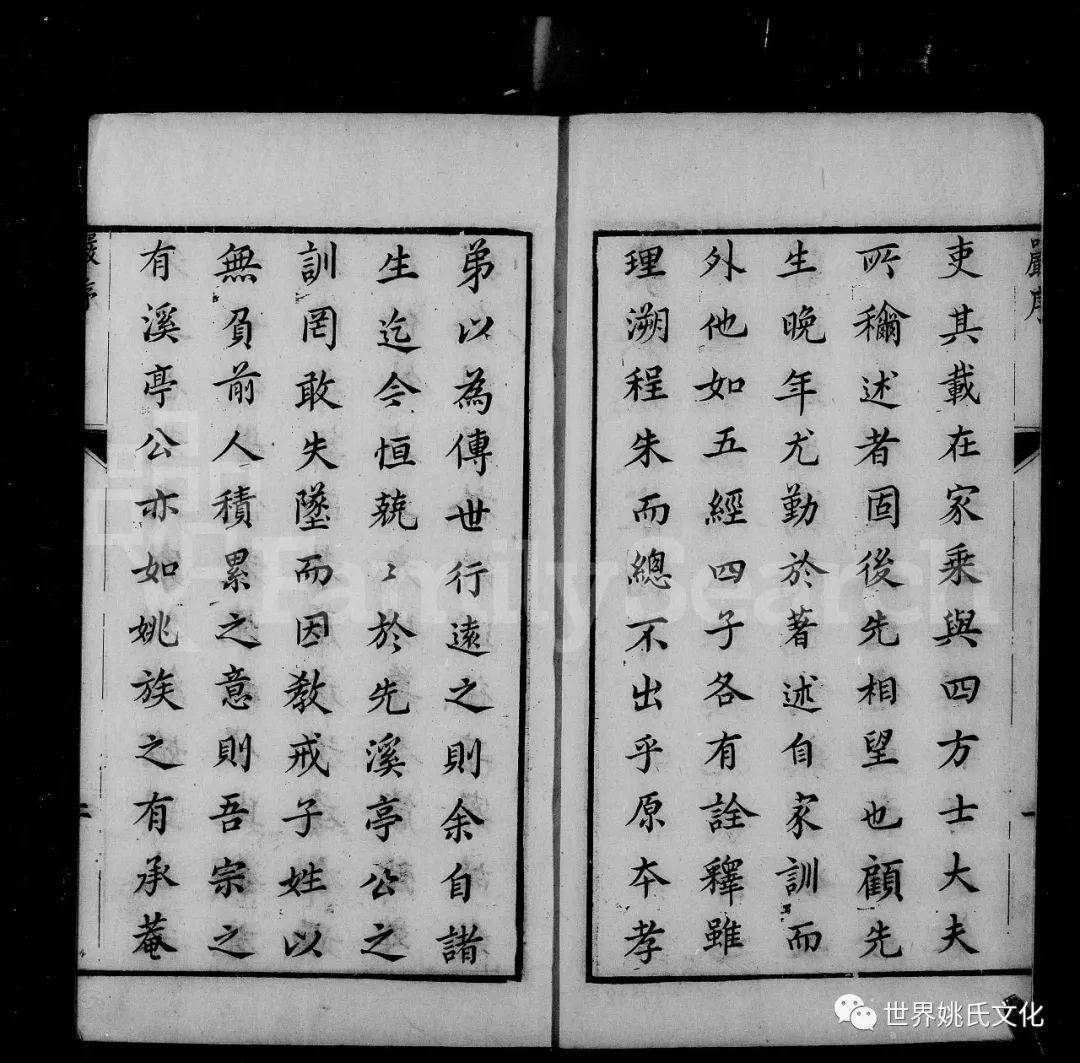 嚴序
吏其載在家乗與四方士大夫
所稱述者固後先相望也顧先
生晚年尤勤於著述自家訓而
外他如五經四子各有詮釋雖
理溯程朱而總不出乎原本孝
弟以為傳世行遠之則余自諸
生迄今恒兢〻於先溪亭公之
訓罔敢失墜而因教戒子姓以
無負前人積累之意則吾宗之
有溪亭公亦如姚族之有承菴
嚴序
二
FamilySearch
世界姚氏文化